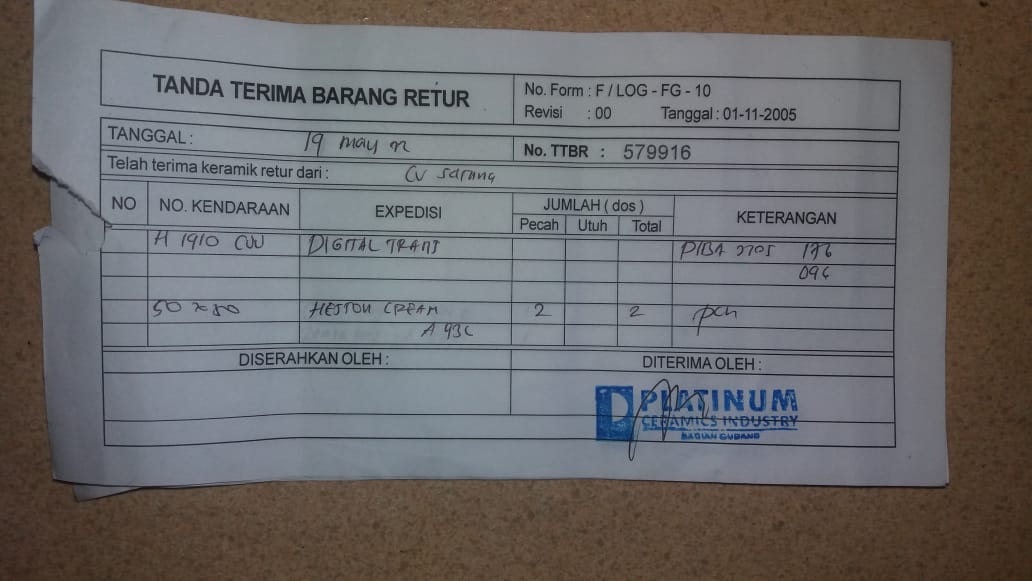 TANDA TERIMA BARANG RETUR
No. Form : F / LOG - FG - 10
Revisi : 00 Tanggal : 01-11-2005
TANGGAL : 19 may
No. TTBR : 579916
Telah terima keramik retur dari : CV sarana
NO NO. KENDARAAN EXPEDISI JUMLAH ( dos ) KETERANGAN
Pecah Utuh Total
H 1910 DIGITAL TRANS 176
096
50 x 50 CREAM 2 2 pch
A 93C
DISERAHKAN OLEH : DITERIMA OLEH :
PLATINUM
CERAMICS INDUSTRY
BAGIAN GUDANG